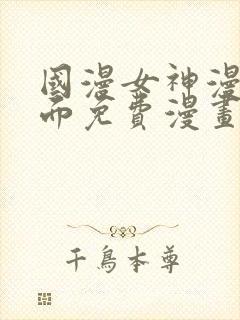 國漫女神漫
而免費漫畫
千鳥本尊